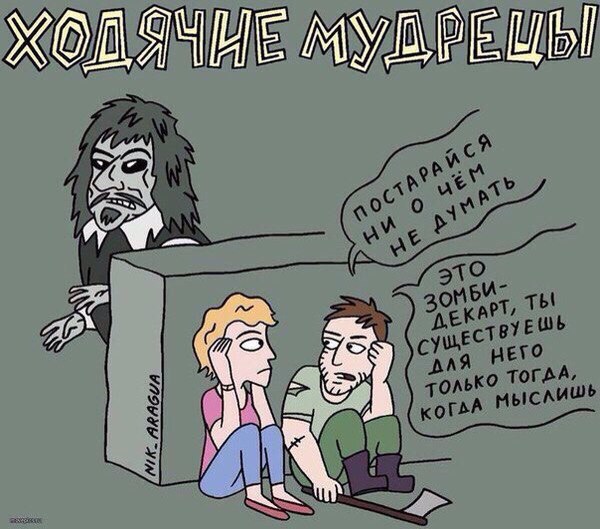 ХОДЯЧИЕ МУДРЕЦЫ
ПОСТАРАЙСЯ
НИ О ЧЁМ
НЕ ДУМАТЬ
ЭТО
ЗОМБИ-
ДЕКАРТ, ТЫ
СУЩЕСТВУЕШЬ
ДЛЯ НЕГО
ТОЛЬКО ТОГДА,
КОГДА МЫСЛИШЬ
NIK_ARAGUA